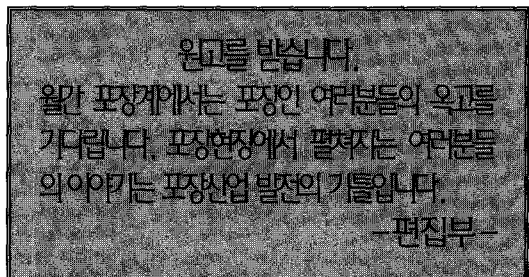 원고를 받습니다.
월간 포장계에서는 포장인 여러분들의 옥고를
기다립니다. 포장현장에서 펼쳐지는 여러분들
의 이야기는 포장산업 발전의 기틀입니다.
-편집부-